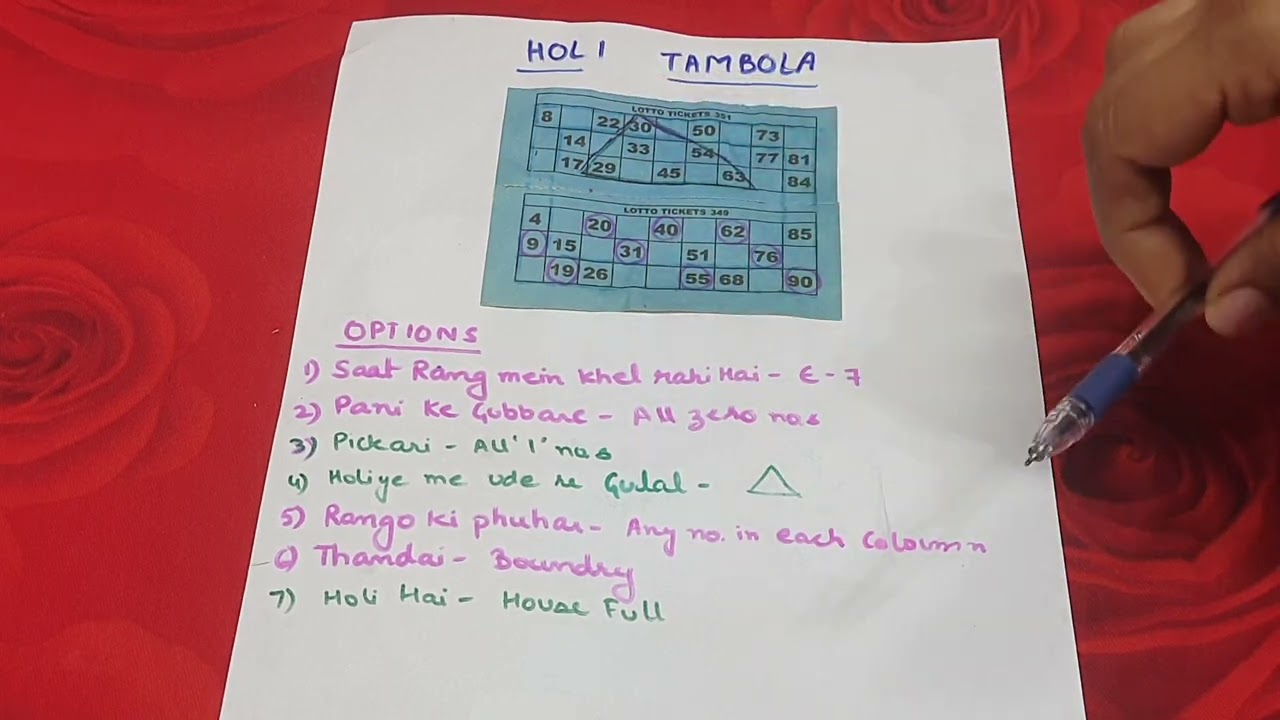 HOLI TAMBOLA
LOTTO TICKETS 351
8 22 30 50 73
14 33 54 77 81
17 29 45 63 84
LOTTO TICKETS 349
4 20 40 62 85
9 15 31 51 76
19 26 55 68 90
OPTIONS
1) Saat Rang mein khel rahi Hai - E - 7
2) Pani Ke Gubbare - All zero nos
3) Pickari - All '1' nos
4) Holiye me ude re Gulal -
5) Rango Ki phuhar - Any no. in each Coloumn
6) Thandai - Boundry
7) Holi Hai - House Full